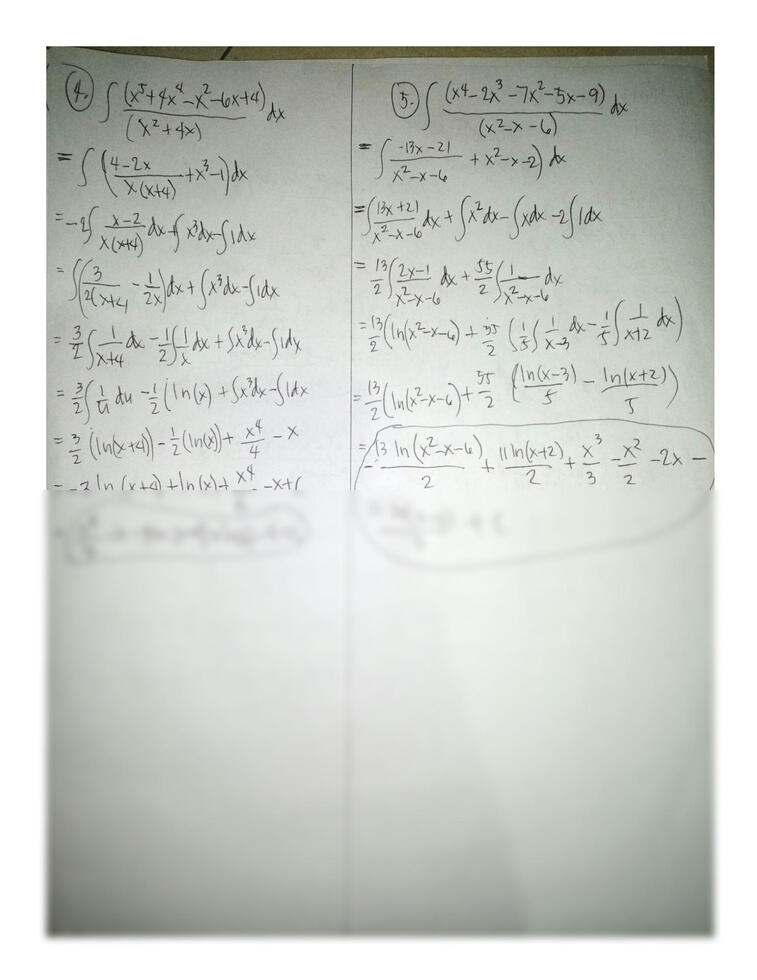 4. ∫ (x⁵+4x⁴-x²-6x+4)/(x²+4x) dx
= ∫ (4-2x/x(x+4) + x³-1) dx
= -2∫ x-2/x(x+4) dx + ∫x³dx - ∫1dx
= ∫(3/2(x+4) - 1/2x) dx + ∫x³dx - ∫1dx
= 3/2 ∫ 1/x+4 dx - 1/2 ∫ 1/x dx + ∫x³dx - ∫1dx
= 3/2 ∫ 1/u du - 1/2 (ln(x) + ∫x³dx - ∫1dx
= 3/2 (ln(x+4)) - 1/2 (ln(x)) + x⁴/4 - x
= -3 ln(x+4) + ln(x) + x⁴ -x+C
5. ∫ (x4-2x³-7x²-5x-9)/(x²-x-6) dx
= ∫ -13x-21/x²-x-6 + x²-x-2) dx
= ∫ 13x+21/x²-x-6 dx + ∫x²dx - ∫xdx - 2∫1dx
= 13/2 ∫ 2x-1/x²-x-6 dx + 55/2 ∫ 1/x²-x-6 dx
= 13/2 (ln(x²-x-6) + 55/2 (1/5 ∫ 1/x-3 dx - 1/5 ∫ 1/x+2 dx)
= 13/2 (ln(x²-x-6) + 55/2 (ln(x-3)/5 - ln(x+2)/5)
= -13 ln(x²-x-6)/2 + 11 ln(x+2)/2 + x³/3 - x²/2 - 2x -